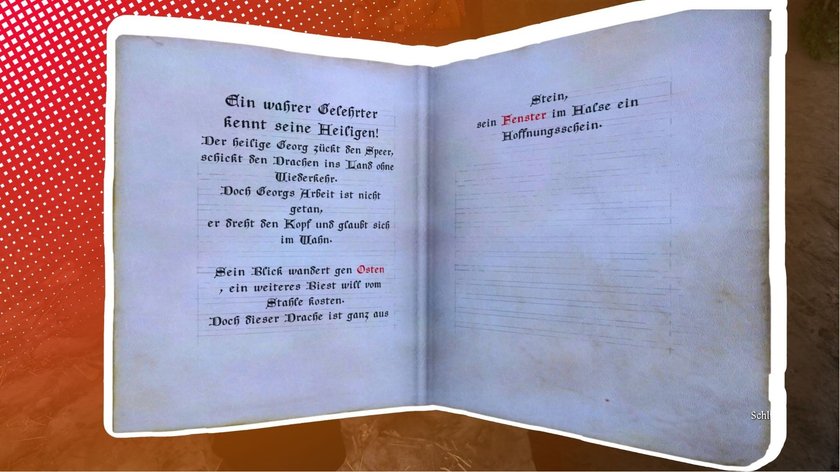 Ein wahrer Gelehrter
kennt seine Heiligen!
Der heilige Georg zückt den Speer,
schickt den Drachen ins Land ohne
Wiederkehr.
Doch Georgs Arbeit ist nicht
getan,
er dreht den Kopf und glaubt sich
im Wahn.
Sein Blick wandert gen Osten
, ein weiteres Biest will vom
Stahle kosten.
Doch dieser Drache ist ganz aus
Stein,
sein Fenster im Halse ein
Hoffnungsschein.
Schl